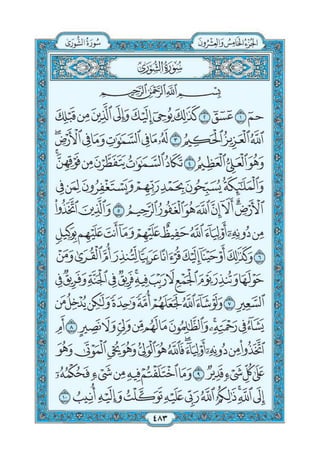 الجزء الخامس والعشرون
سُورَةُ الشُّورَىٰ
سُورَةُ الشُّورَىٰ
بِسْمِ اللَّهِ الرَّحْمَٰنِ الرَّحِيمِ
حمٓ ١ عٓسٓقٓ ٢ كَذَٰلِكَ يُوحِىٓ إِلَيْكَ وَإِلَى ٱلَّذِينَ مِن قَبْلِكَ
ٱللَّهُ ٱلْعَزِيزُ ٱلْحَكِيمُ ٣ لَهُۥ مَا فِى ٱلسَّمَٰوَٰتِ وَمَا فِى ٱلْأَرْضِۖ
وَهُوَ ٱلْعَلِىُّ ٱلْعَظِيمُ ٤ تَكَادُ ٱلسَّمَٰوَٰتُ يَتَفَطَّرْنَ مِن فَوْقِهِنَّۚ
وَٱلْمَلَٰٓئِكَةُ يُسَبِّحُونَ بِحَمْدِ رَبِّهِمْ وَيَسْتَغْفِرُونَ لِمَن فِى
ٱلْأَرْضِۗ أَلَآ إِنَّ ٱللَّهَ هُوَ ٱلْغَفُورُ ٱلرَّحِيمُ ٥ وَٱلَّذِينَ ٱتَّخَذُوا۟
مِن دُونِهِۦٓ أَوْلِيَآءَ ٱللَّهُ حَفِيظٌ عَلَيْهِمْ وَمَآ أَنتَ عَلَيْهِم بِوَكِيلٍ
٦ وَكَذَٰلِكَ أَوْحَيْنَآ إِلَيْكَ قُرْءَانًا عَرَبِيًّا لِّتُنذِرَ أُمَّ ٱلْقُرَىٰ وَمَنْ
حَوْلَهَا وَتُنذِرَ يَوْمَ ٱلْجَمْعِ لَا رَيْبَ فِيهِۚ فَرِيقٌ فِى ٱلْجَنَّةِ وَفَرِيقٌ فِى
ٱلسَّعِيرِ ٧ وَلَوْ شَآءَ ٱللَّهُ لَجَعَلَهُمْ أُمَّةً وَٰحِدَةً وَلَٰكِن يُدْخِلُ مَن
يَشَآءُ فِى رَحْمَتِهِۦۚ وَٱلظَّٰلِمُونَ مَا لَهُم مِّن وَلِىٍّ وَلَا نَصِيرٍ ٨ أَمِ
ٱتَّخَذُوا۟ مِن دُونِهِۦٓ أَوْلِيَآءَۖ فَٱللَّهُ هُوَ ٱلْوَلِىُّ وَهُوَ يُحْىِ ٱلْمَوْتَىٰ وَهُوَ
عَلَىٰ كُلِّ شَىْءٍ قَدِيرٌ ٩ وَمَا ٱخْتَلَفْتُمْ فِيهِ مِن شَىْءٍ فَحُكْمُهُۥٓ
إِلَى ٱللَّهِۚ ذَٰلِكُمُ ٱللَّهُ رَبِّى عَلَيْهِ تَوَكَّلْتُ وَإِلَيْهِ أُنِيبُ ١٠
٤٨٣